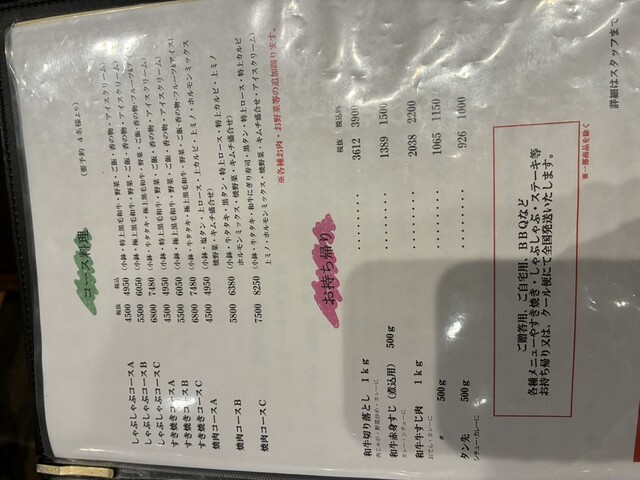 コース料理
(要予約 4名様より)
税抜 税込
しゃぶしゃぶコースA 4500 4950 (小鉢・特上黒毛和牛・野菜・ご飯・香の物・アイスクリーム)
しゃぶしゃぶコースB 5500 6050 (小鉢・極上黒毛和牛・野菜・ご飯・香の物・アイスクリーム)
しゃぶしゃぶコースC 6800 7480 (小鉢・牛タタキ・極上黒毛和牛・野菜・ご飯・香の物・フルーツ&アイス)
すき焼きコースA 4500 4950 (小鉢・特上黒毛和牛・野菜・ご飯・香の物・アイスクリーム)
すき焼きコースB 5500 6050 (小鉢・極上黒毛和牛・野菜・ご飯・香の物・アイスクリーム)
すき焼きコースC 6800 7480 (小鉢・牛タタキ・極上黒毛和牛・野菜・ご飯・香の物・フルーツ&アイス)
焼肉コースA 4500 4950 (小鉢・塩タン・上ロース・上カルビ・上ミノ・ホルモンミックス
焼野菜・キムチ盛合せ)
焼肉コースB 5800 6380 (小鉢・牛タタキ・黒タン・特上ロース・特上カルビ・上ミノ
ホルモンミックス・焼野菜・キムチ盛合せ・アイスクリーム)
焼肉コースC 7500 8250 (小鉢・牛タタキ・和牛にぎり寿司・黒タン・特上ロース・特上カルビ
上ミノ・ホルモンミックス・焼野菜・キムチ盛合せ・アイスクリーム)
※各種お肉・お野菜等の追加賜ります。
お持ち帰り
税抜 税込8%
和牛切り落とし 1kg ・・・・・・・・ 3612 3900
和牛赤身すじ(煮込用) 500g ・・・・・・ 1389 1500
カレー・シチューに
和牛牛すじ肉 1kg ・・・・・・・・ 2038 2200
おでん・カレーに
〃 500g ・・・・・・・・ 1065 1150
タン先 500g ・・・・・・・・ 926 1000
シチュー・カレーに
ご贈答用、ご自宅用、BBQなど
各種メニューやすき焼き・しゃぶしゃぶ・ステーキ等
お持ち帰り又は、クール便にて全国発送いたします。
※一部商品を除く
詳細はスタッフまで